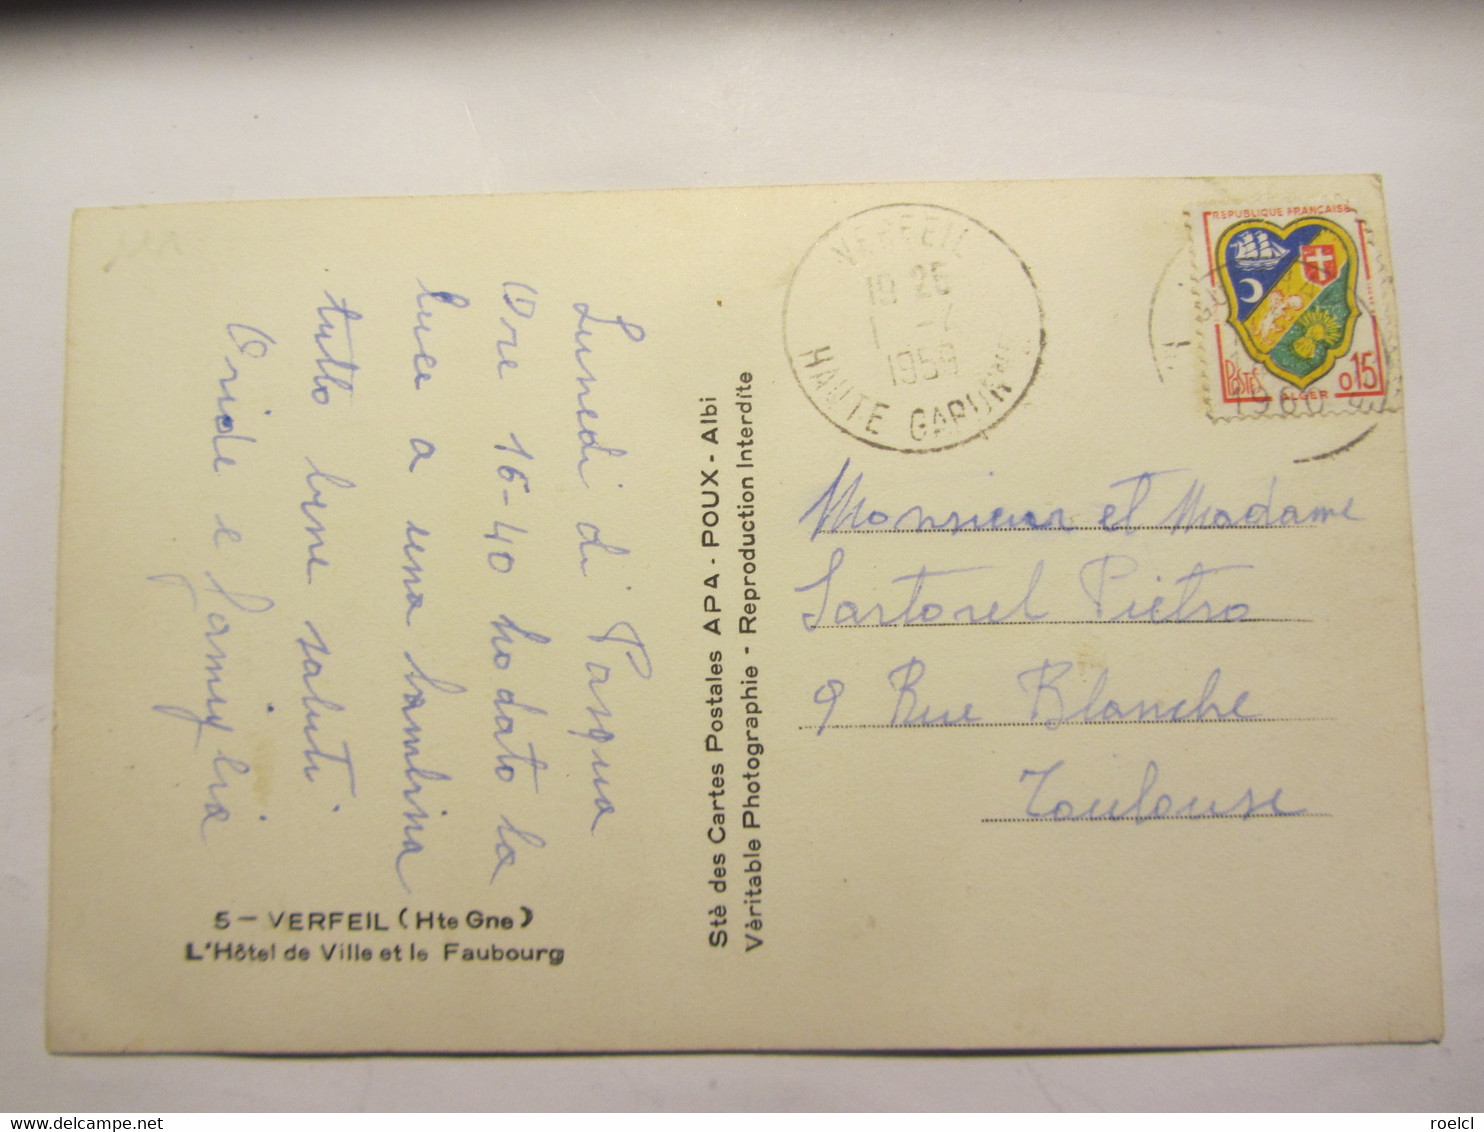 Lunedi di Pasqua
Ore 16-40 ho dato la
luce a una bambina
tutto bene saluti
Oride e famiglia
5 - VERFEIL (Hte Gne)
L'Hôtel de Ville et le Faubourg
Stè des Cartes Postales APA - POUX - Albi
Vèritable Photographie - Reproduction Interdite
VERFEIL
19 25
1959
HAUTE GARONNE
REPUBLIQUE FRANÇAISE
POSTES
0,15
ALGER
1960
Monsieur et Madame
Sartorel Pietro
9 Rue Blanche
Toulouse
roelcl